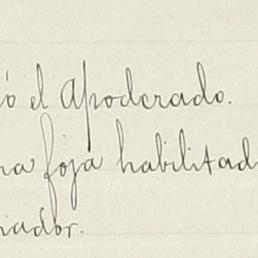 ó el Apoderado.
na foja habilitad
iador.